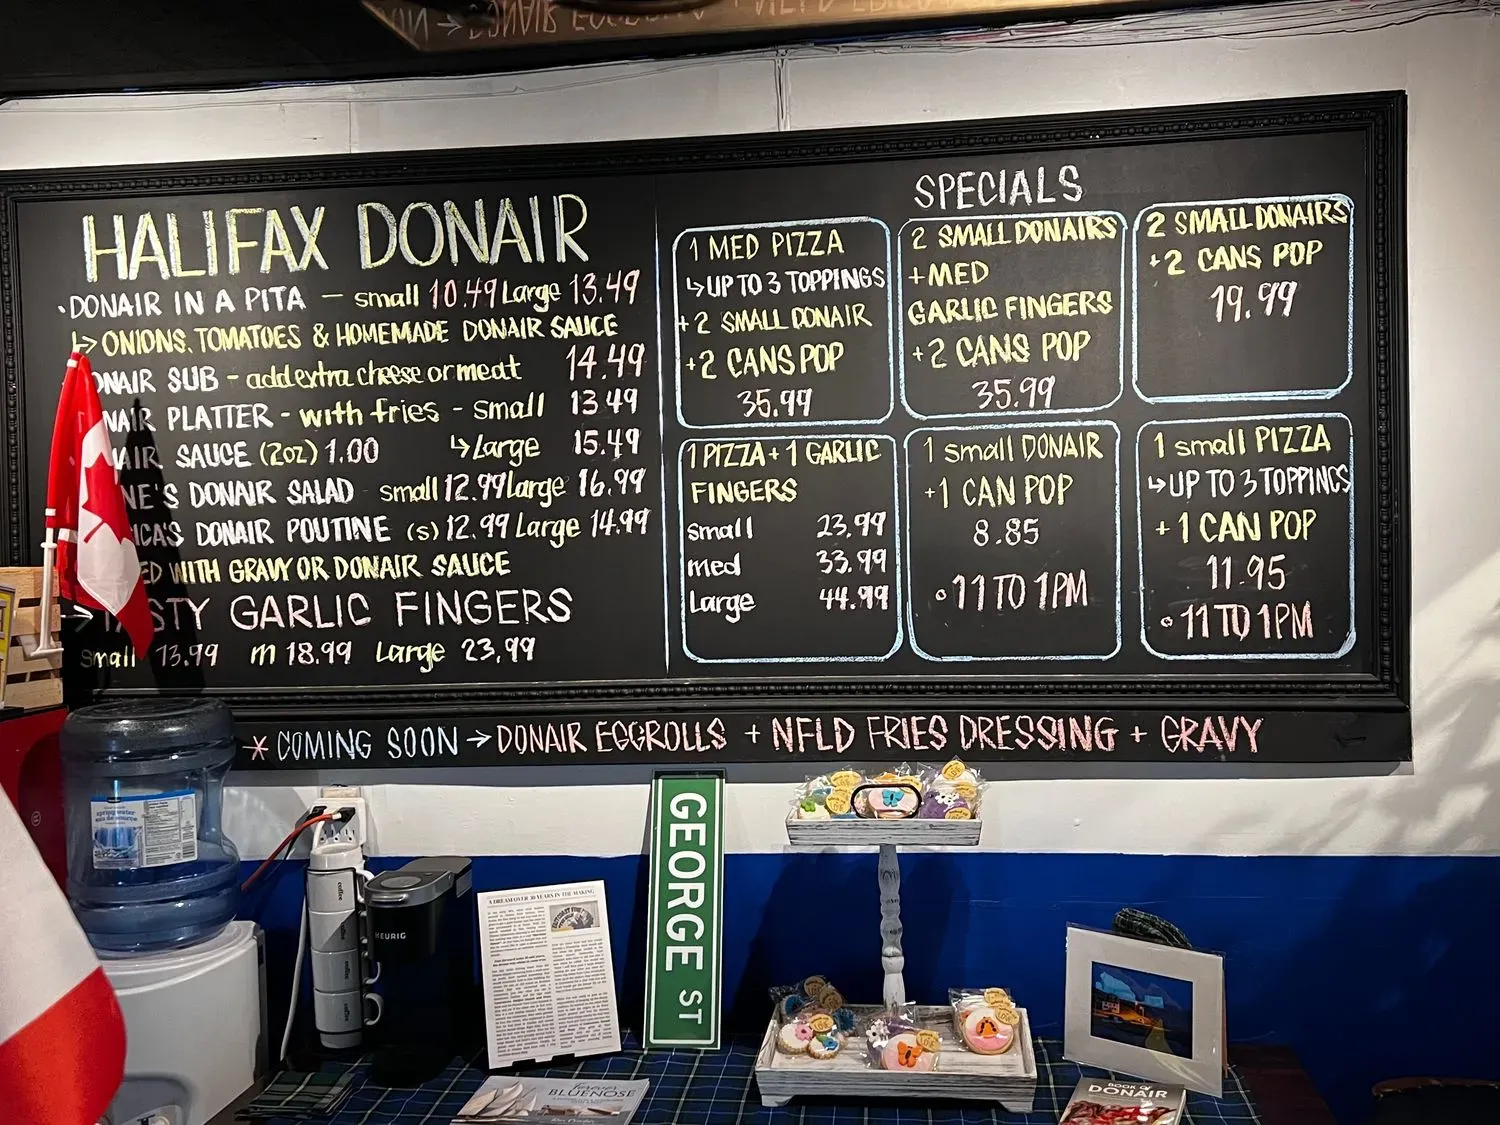 HALIFAX DONAIR
• DONAIR IN A PITA – small 10.49 Large 13.49
↳ ONIONS, TOMATOES & HOMEMADE DONAIR SAUCE
ONAIR SUB - add extra cheese or meat 14.49
NAIR PLATTER - with fries - small 13.49
AIR SAUCE (2oz) 1.00 ↳ Large 15.49
NE'S DONAIR SALAD small 12.99 Large 16.99
ICA'S DONAIR POUTINE (s) 12.99 Large 14.99
ED WITH GRAVY OR DONAIR SAUCE
→ TASTY GARLIC FINGERS
Small 13.99 m 18.99 Large 23.99
SPECIALS
1 MED PIZZA
↳ UP TO 3 TOPPINGS
+ 2 SMALL DONAIR
+2 CANS POP
35.99
2 SMALL DONAIRS
+MED
GARLIC FINGERS
+2 CANS POP
35.99
2 SMALL DONAIRS
+2 CANS POP
19.99
1 PIZZA + 1 GARLIC
FINGERS
small 23.99
med 33.99
Large 44.99
1 small DONAIR
+1 CAN POP
8.85
• 11 TO 1PM
1 small PIZZA
↳ UP TO 3 TOPPINGS
+ 1 CAN POP
11.95
• 11 TO 1PM
* COMING SOON → DONAIR EGGROLLS + NFLD FRIES DRESSING + GRAVY
spring water
KEURIG
coffee
coffee
coffee
coffee
A DREAM OVER 30 YEARS IN THE MAKING
GEORGE ST
Forever
BLUENOSE
BOOK OF
DONAIR